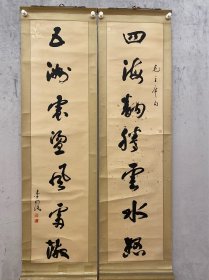 四海翻騰雲水怒
毛主席句
五洲震盪風雷激